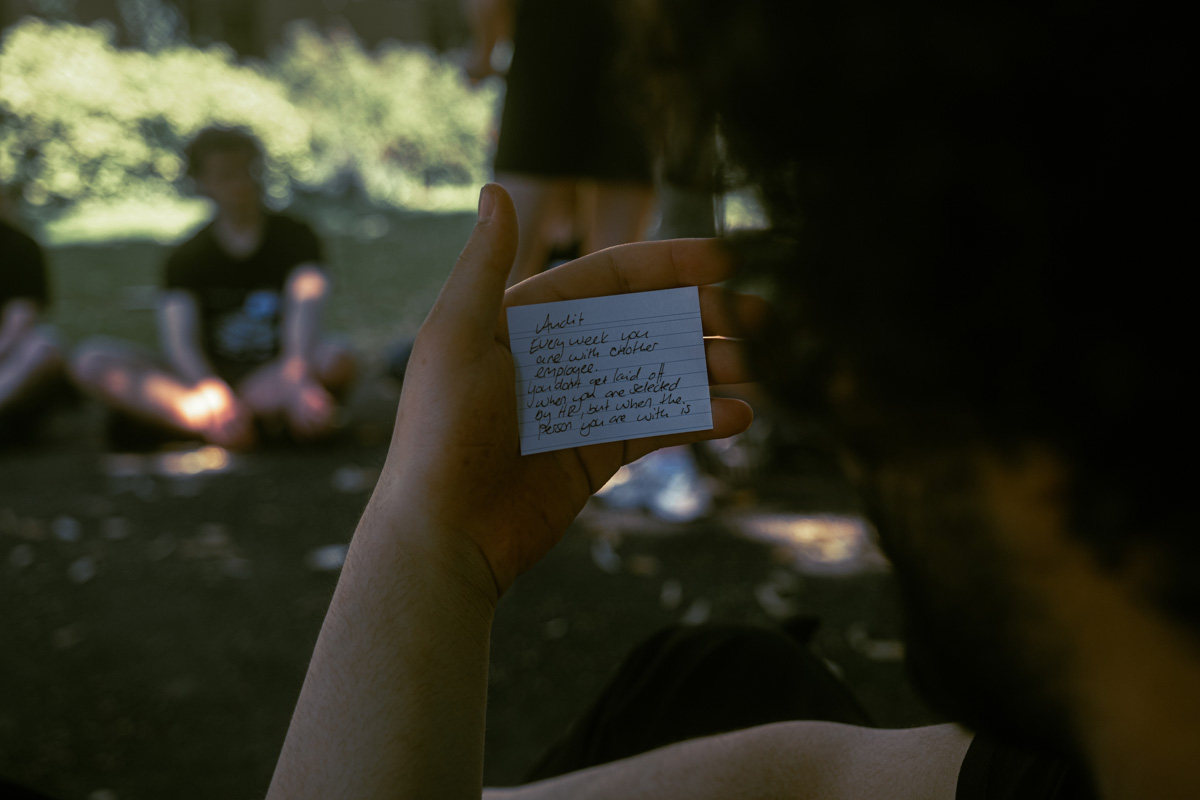 Audit
Every week you
are with another
employee.
you don't get laid off
when you are selected
by HR, but when the
person you are with is